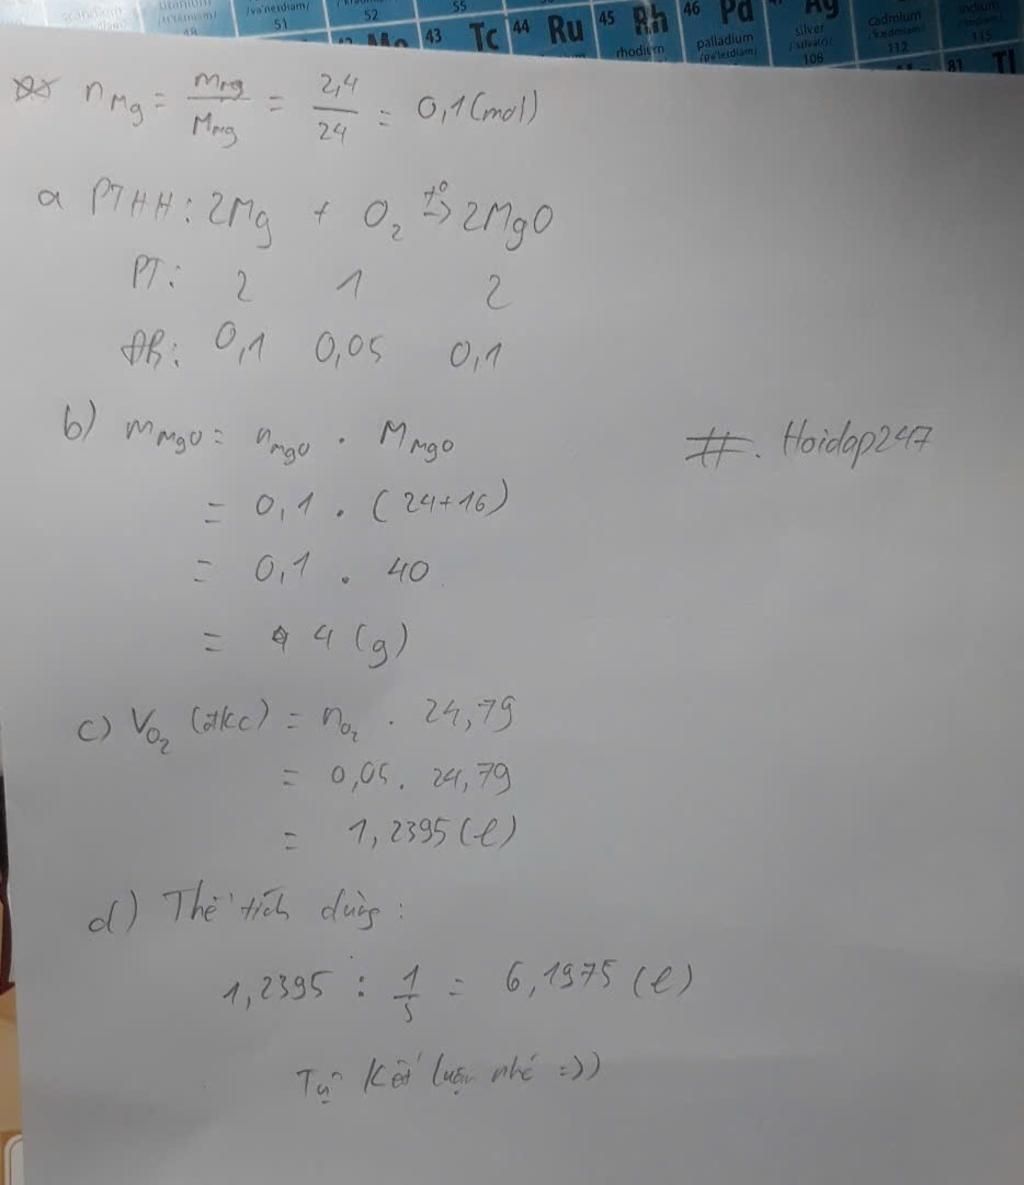 scandium
titanium
/va'neɪdiəm/
51
52
55
43 Tc 44 Ru 45 Rh 46 Pd Ag
rhodium
palladium
/pə'leɪdiəm/
silver
/'sɪlvə(r)/
108
cadmium
/'kædmiəm/
112
indium
115
81 Tl
n Mg = m Mg / M Mg = 2,4 / 24 = 0,1 (mol)
a PTHH: 2Mg + O₂ t⁰→ 2MgO
PT: 2 1 2
ĐB: 0,1 0,05 0,1
b) m MgO = n MgO . M MgO
= 0,1 . (24+16)
= 0,1 . 40
= 4 (g)
#. Hoidap247
c) V O₂ (đkc) = n O₂ . 24,79
= 0,05 . 24,79
= 1,2395 (l)
d) Thể tích dùng:
1,2395 : 1/5 = 6,1975 (l)
Tự kết luận nhé =))